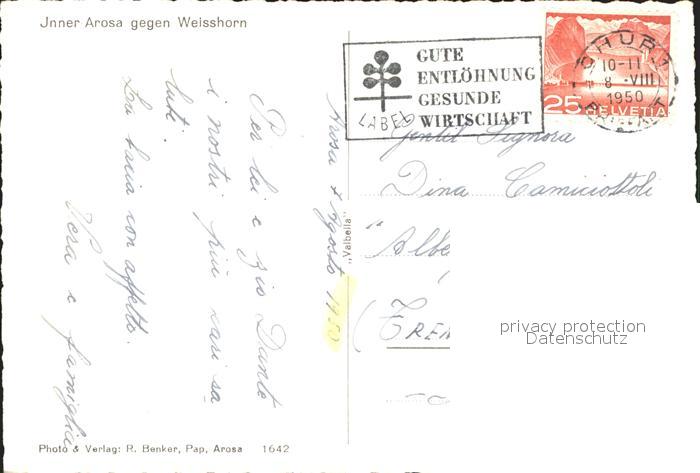 Jnner Arosa gegen Weisshorn
GUTE
ENTLÖHNUNG
GESUNDE
WIRTSCHAFT
LABEL
10-11
8.-VIII
1950
25 HELVETIA
Arosa 7 Agosto 1950
Per lei e zio Dante
i nostri più cari sa
luti.
La bacia con affetto.
Vera e famiglia
„Valbella"
Gentil Signora
Dina Camiciottoli
"Albe
(Fren
privacy protection
Datenschutz
Photo & Verlag: R. Benker, Pap, Arosa 1642